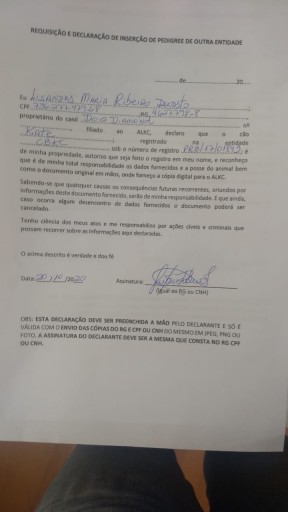 REQUISIÇÃO E DECLARAÇÃO DE INSERÇÃO DE PEDIGREE DE OUTRA ENTIDADE
de 20
Eu Maria Ribeiro
CPF RG
proprietário do canil Diamond ao
Kate filiado ao ALKC, declaro que o cão
CBKC registrado na entidade
sob o número de registro é
de minha propriedade, autorizo que seja feito o registro em meu nome, e reconheço
que é de minha total responsabilidade os dados fornecidos e a posse do animal bem
como o documento original em mãos, onde forneço a cópia digital para o ALKC.
Sabendo-se que quaisquer causas ou consequências futuras recorrentes, oriundos por
informações deste documento fornecido, serão de minha responsabilidade. E que ainda,
caso ocorra algum desencontro de dados fornecidos o documento poderá ser
cancelado.
Tenho ciência dos meus atos e me responsabilizo por ações cíveis e criminais que
possam recorrer sobre as informações aqui declaradas.
O acima descrito é verdade e dou fé
Data: Assinatura:
(Igual ao RG ou CNH)
OBS: ESTA DECLARAÇÃO DEVE SER PREENCHIDA A MÃO PELO DECLARANTE E SÓ É
VÁLIDA COM O ENVIO DAS CÓPIAS DO RG E CPF OU CNH DO MESMO EM JPEG, PNG OU
FOTO. A ASSINATURA DO DECLARANTE DEVE SER A MESMA QUE CONSTA NO RG CPF
OU CNH.